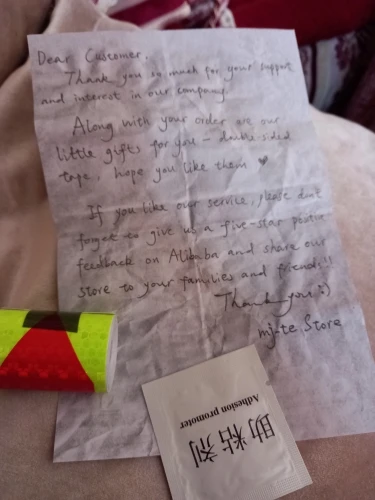 Dear Customer,
Thank you so much for your support
and interest in our company.
Along with your order are our
little gifts for you - double-sided
tape, hope you like them ♥
If you like our service, please don't
forget to give us a five-star positive
feedback on Alibaba and share our
store to your families and friends!!
Thank you :)
mj-te Store
助粘剂
Adhesion promoter